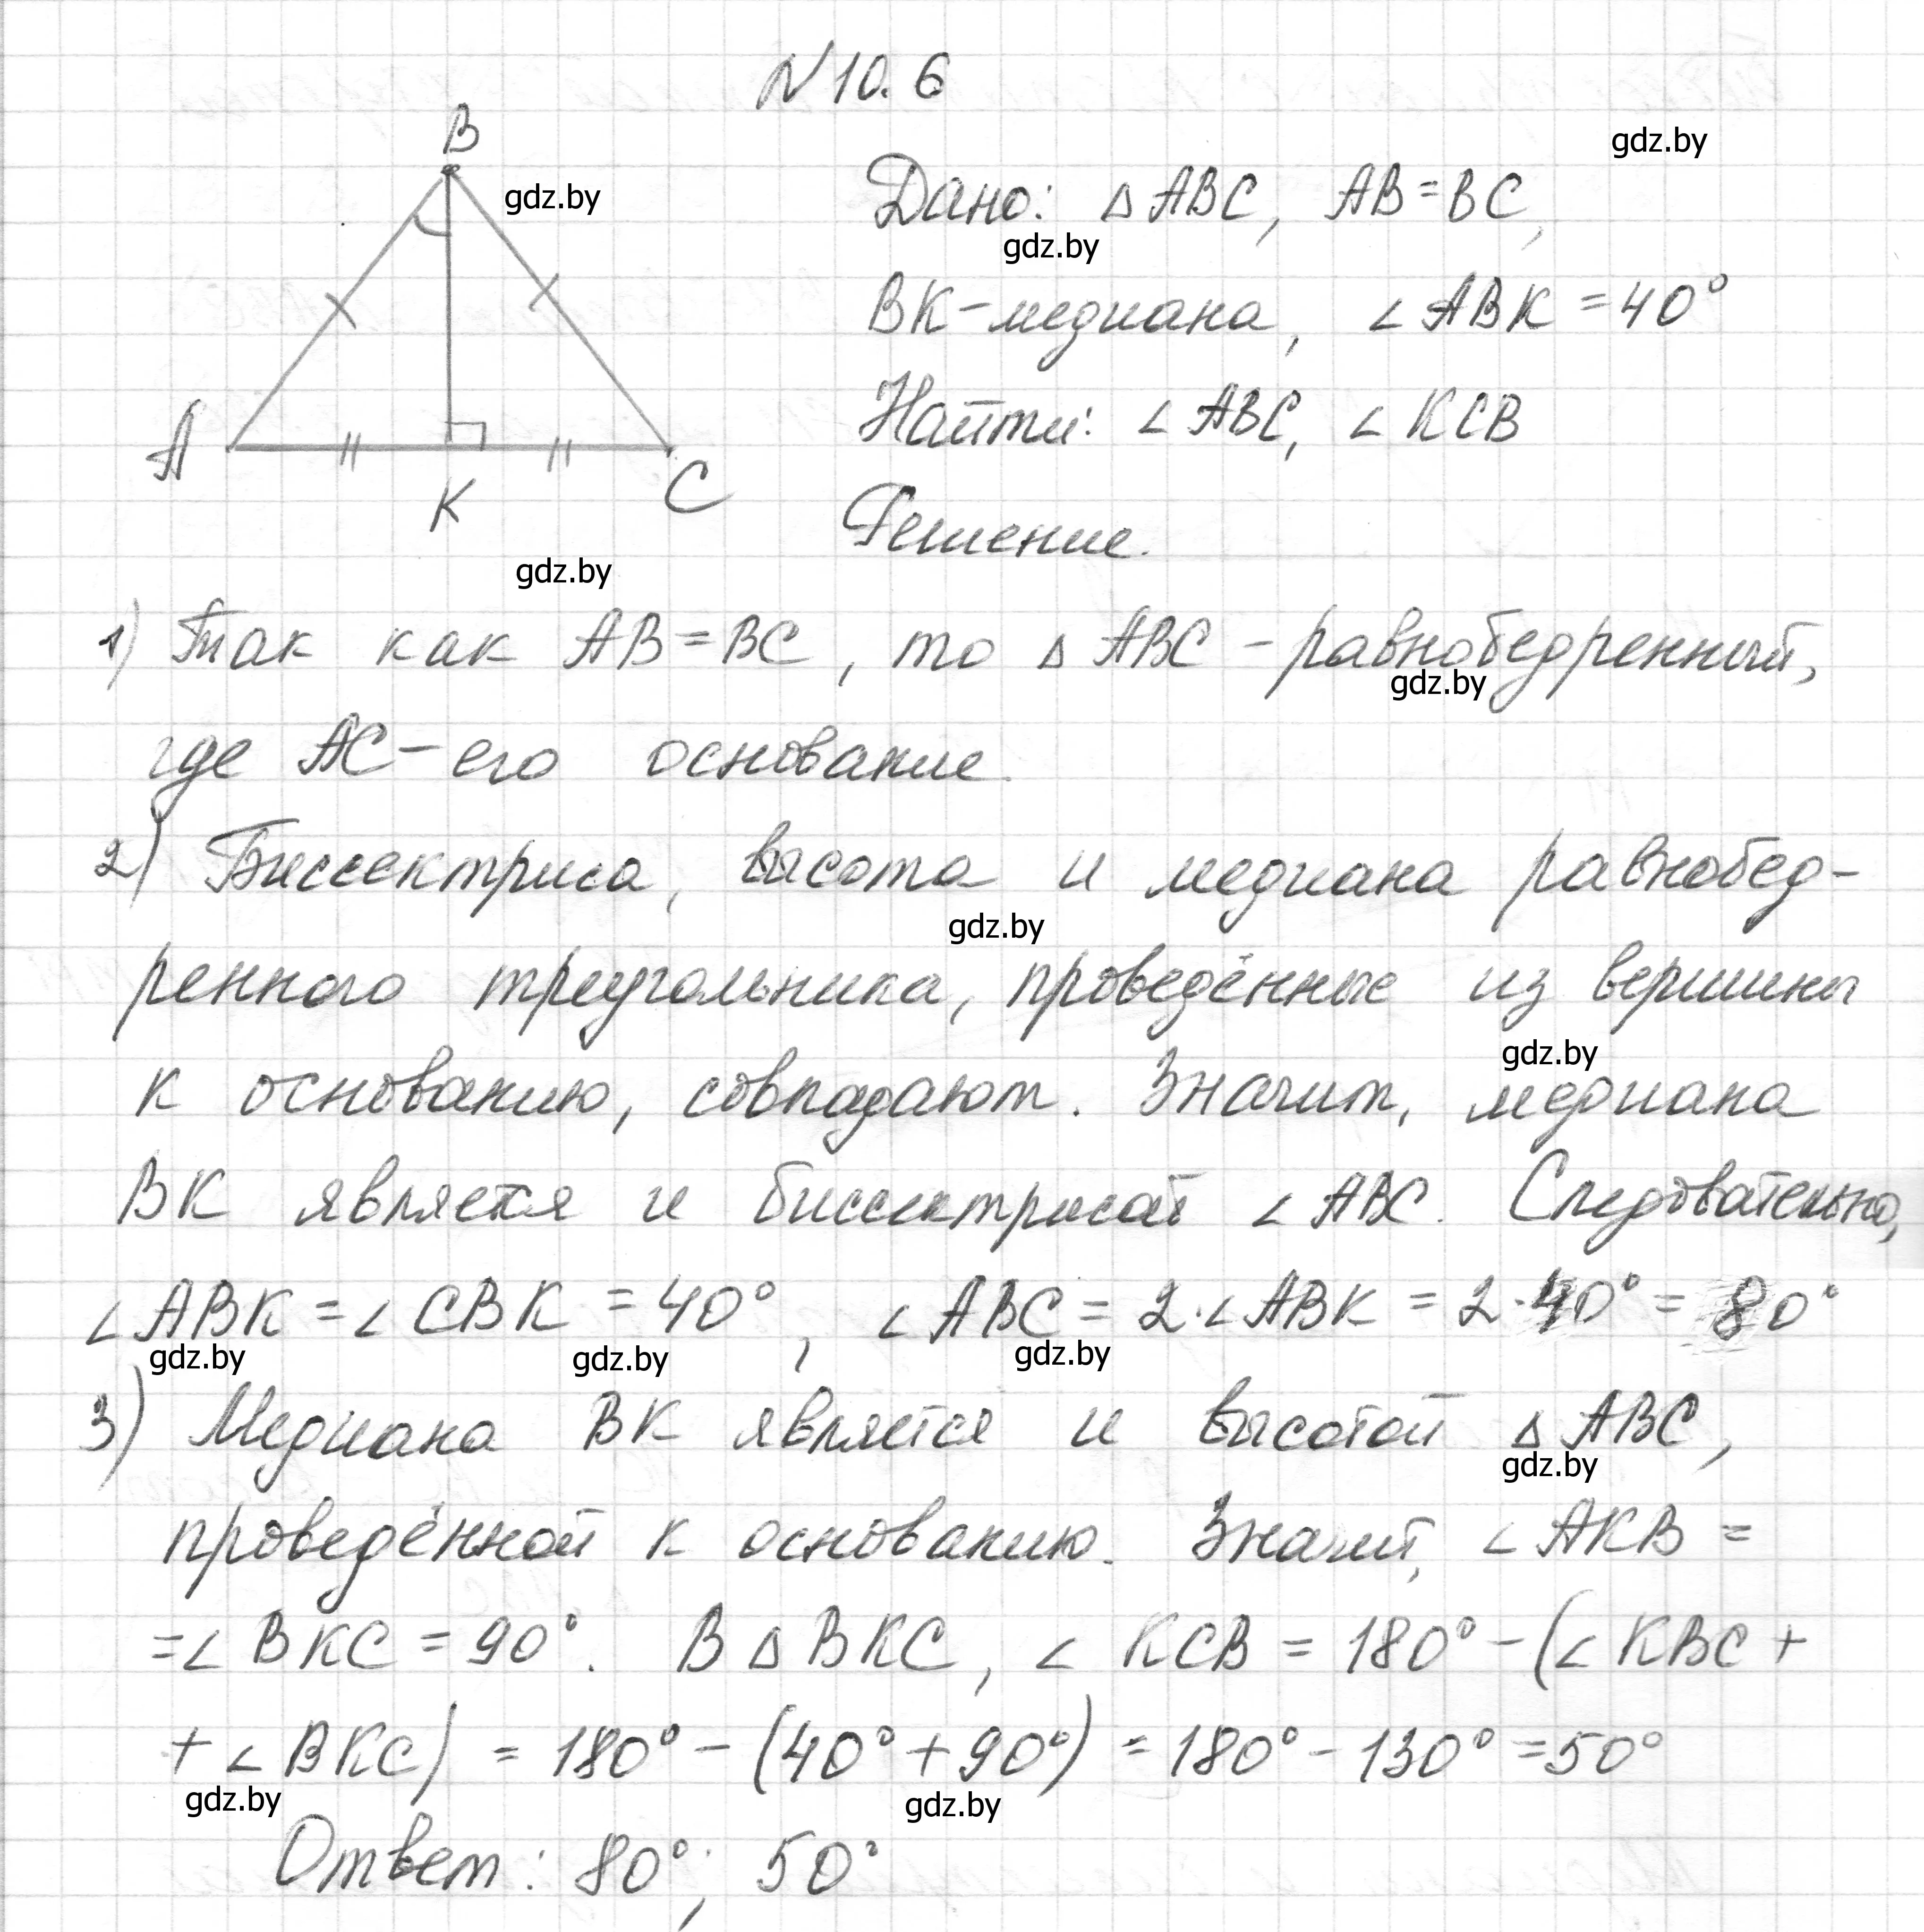 N 10.6
gdz.by
B
gdz.by
Дано: △ ABC, AB = BC,
gdz.by
BK – медиана, ∠ ABK = 40°
Найти: ∠ ABC, ∠ KCB
A
K
C
Решение.
gdz.by
1) Так как AB = BC, то △ ABC – равнобедренный,
gdz.by
где AC – его основание.
2) Биссектриса, высота и медиана равнобед-
gdz.by
ренного треугольника, проведённые из вершины
gdz.by
к основанию, совпадают. Значит, медиана
BK является и биссектрисой ∠ ABC. Следовательно,
∠ ABK = ∠ CBK = 40°, ∠ ABC = 2·∠ ABK = 2·40° = 80°
gdz.by gdz.by gdz.by
3) Медиана BK является и высотой △ ABC,
gdz.by
проведённой к основанию. Значит, ∠ AKB =
= ∠ BKC = 90°. В △ BKC, ∠ KCB = 180° – (∠ KBC +
+ ∠ BKC) = 180° – (40° + 90°) = 180° – 130° = 50°
gdz.by gdz.by
Ответ: 80°; 50°